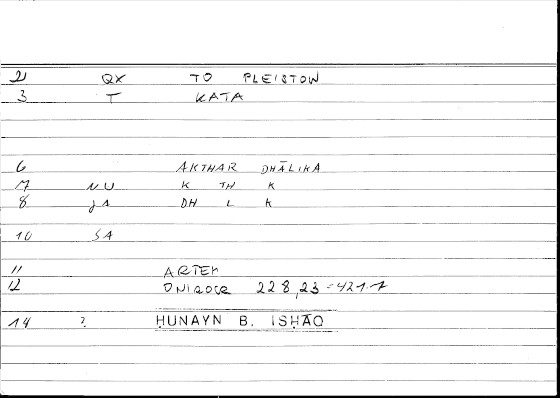 2 QX TO PLEISTON
3 T KATA
6 AKTHAR DHĀLIKA
7 NU K TH K
8 JA DH L K
10 SA
11 ARTEM
12 ONIROCR 228,23=421.7
14 ? ḤUNAYN B. ISḤĀQ